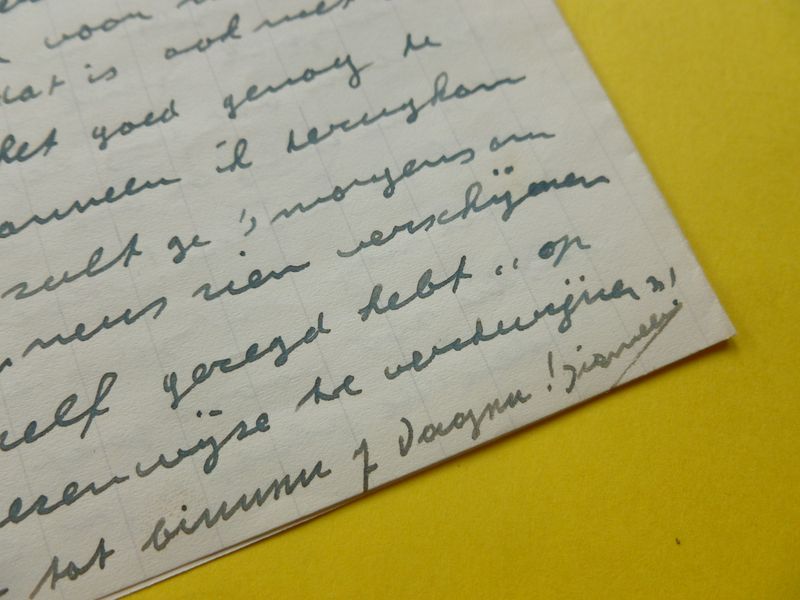 voor
dat is ook niet
het goed genoeg te
wanneer ik terugkom
zult ge 's morgens om
neus zien verschijnen
zelf gezegd hebt „ op
wijze te verdwijnen "!
tot binnen 7 dagen!